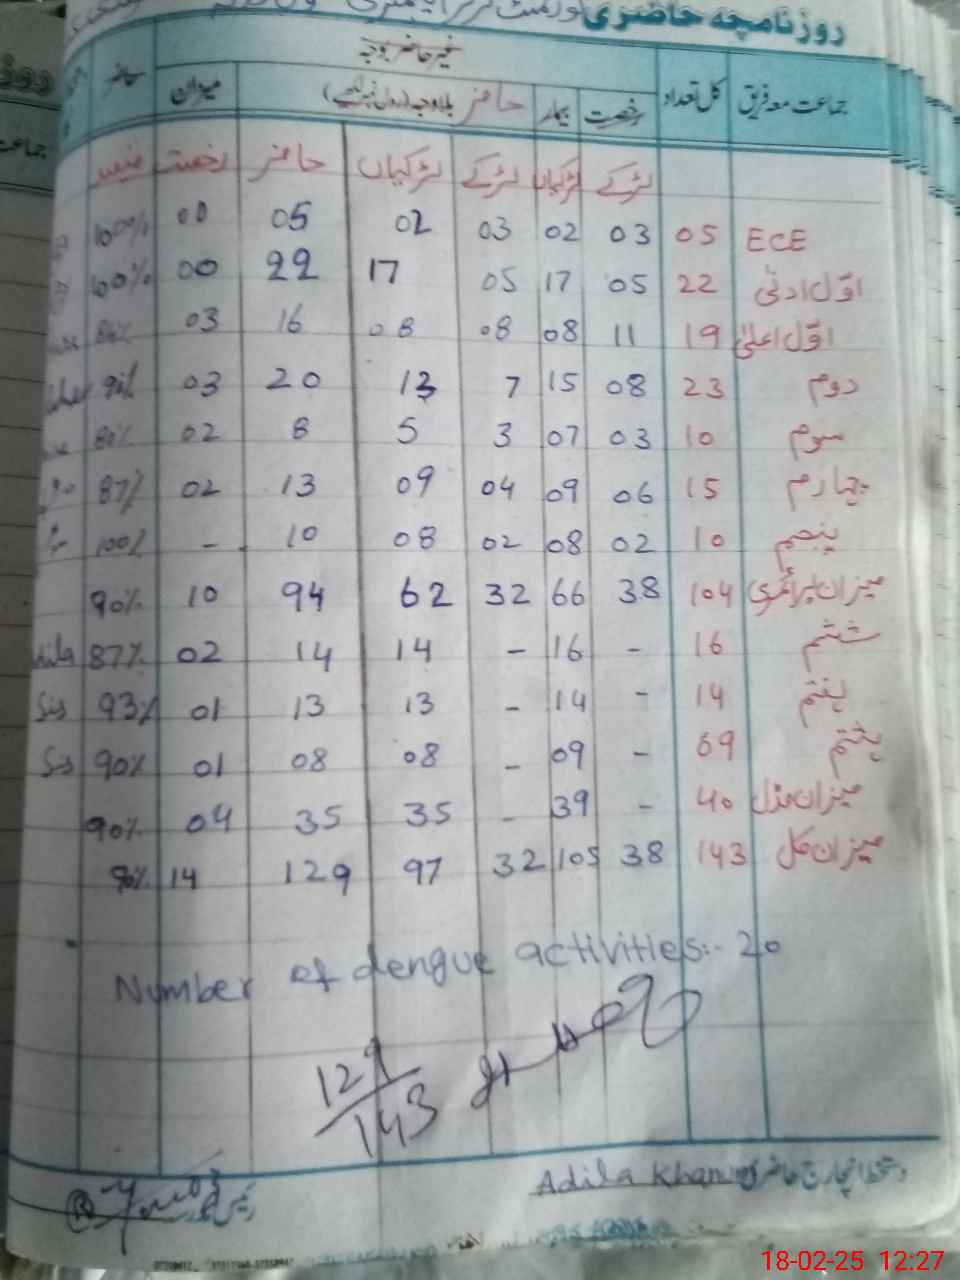 روزنامچہ حاضری
جماعت معہ فریق کل تعداد غیر حاضر بوجہ میزان حاضر
رخصت بیمار حاضر بلاوجہ (رول نمبر لکھیے)
لڑکے لڑکیاں لڑکے لڑکیاں حاضر رخصت فیصد
ECE 05 03 02 03 02 05 00 100%
اوّل ادنیٰ 22 05 17 05 17 22 00 100%
اوّل اعلیٰ 19 11 08 08 08 16 03
دوم 23 08 15 7 13 20 03 91%
سوم 10 03 07 3 5 8 02 80%
چہارم 15 06 09 04 09 13 02 87%
پنجم 10 02 08 02 08 10 - 100%
میزان پرائمری 104 38 66 32 62 94 10 90%
ششم 16 - 16 - 14 14 02 87%
ہفتم 14 - 14 - 13 13 01 93%
ہشتم 09 - 09 - 08 08 01 90%
میزان مڈل 40 - 39 - 35 35 04 90%
میزان کل 143 38 105 32 97 129 14 90%
Number of dengue activities:- 20
129/143
دستخط انچارج حاضری Adila Khan
18-02-25 12:27